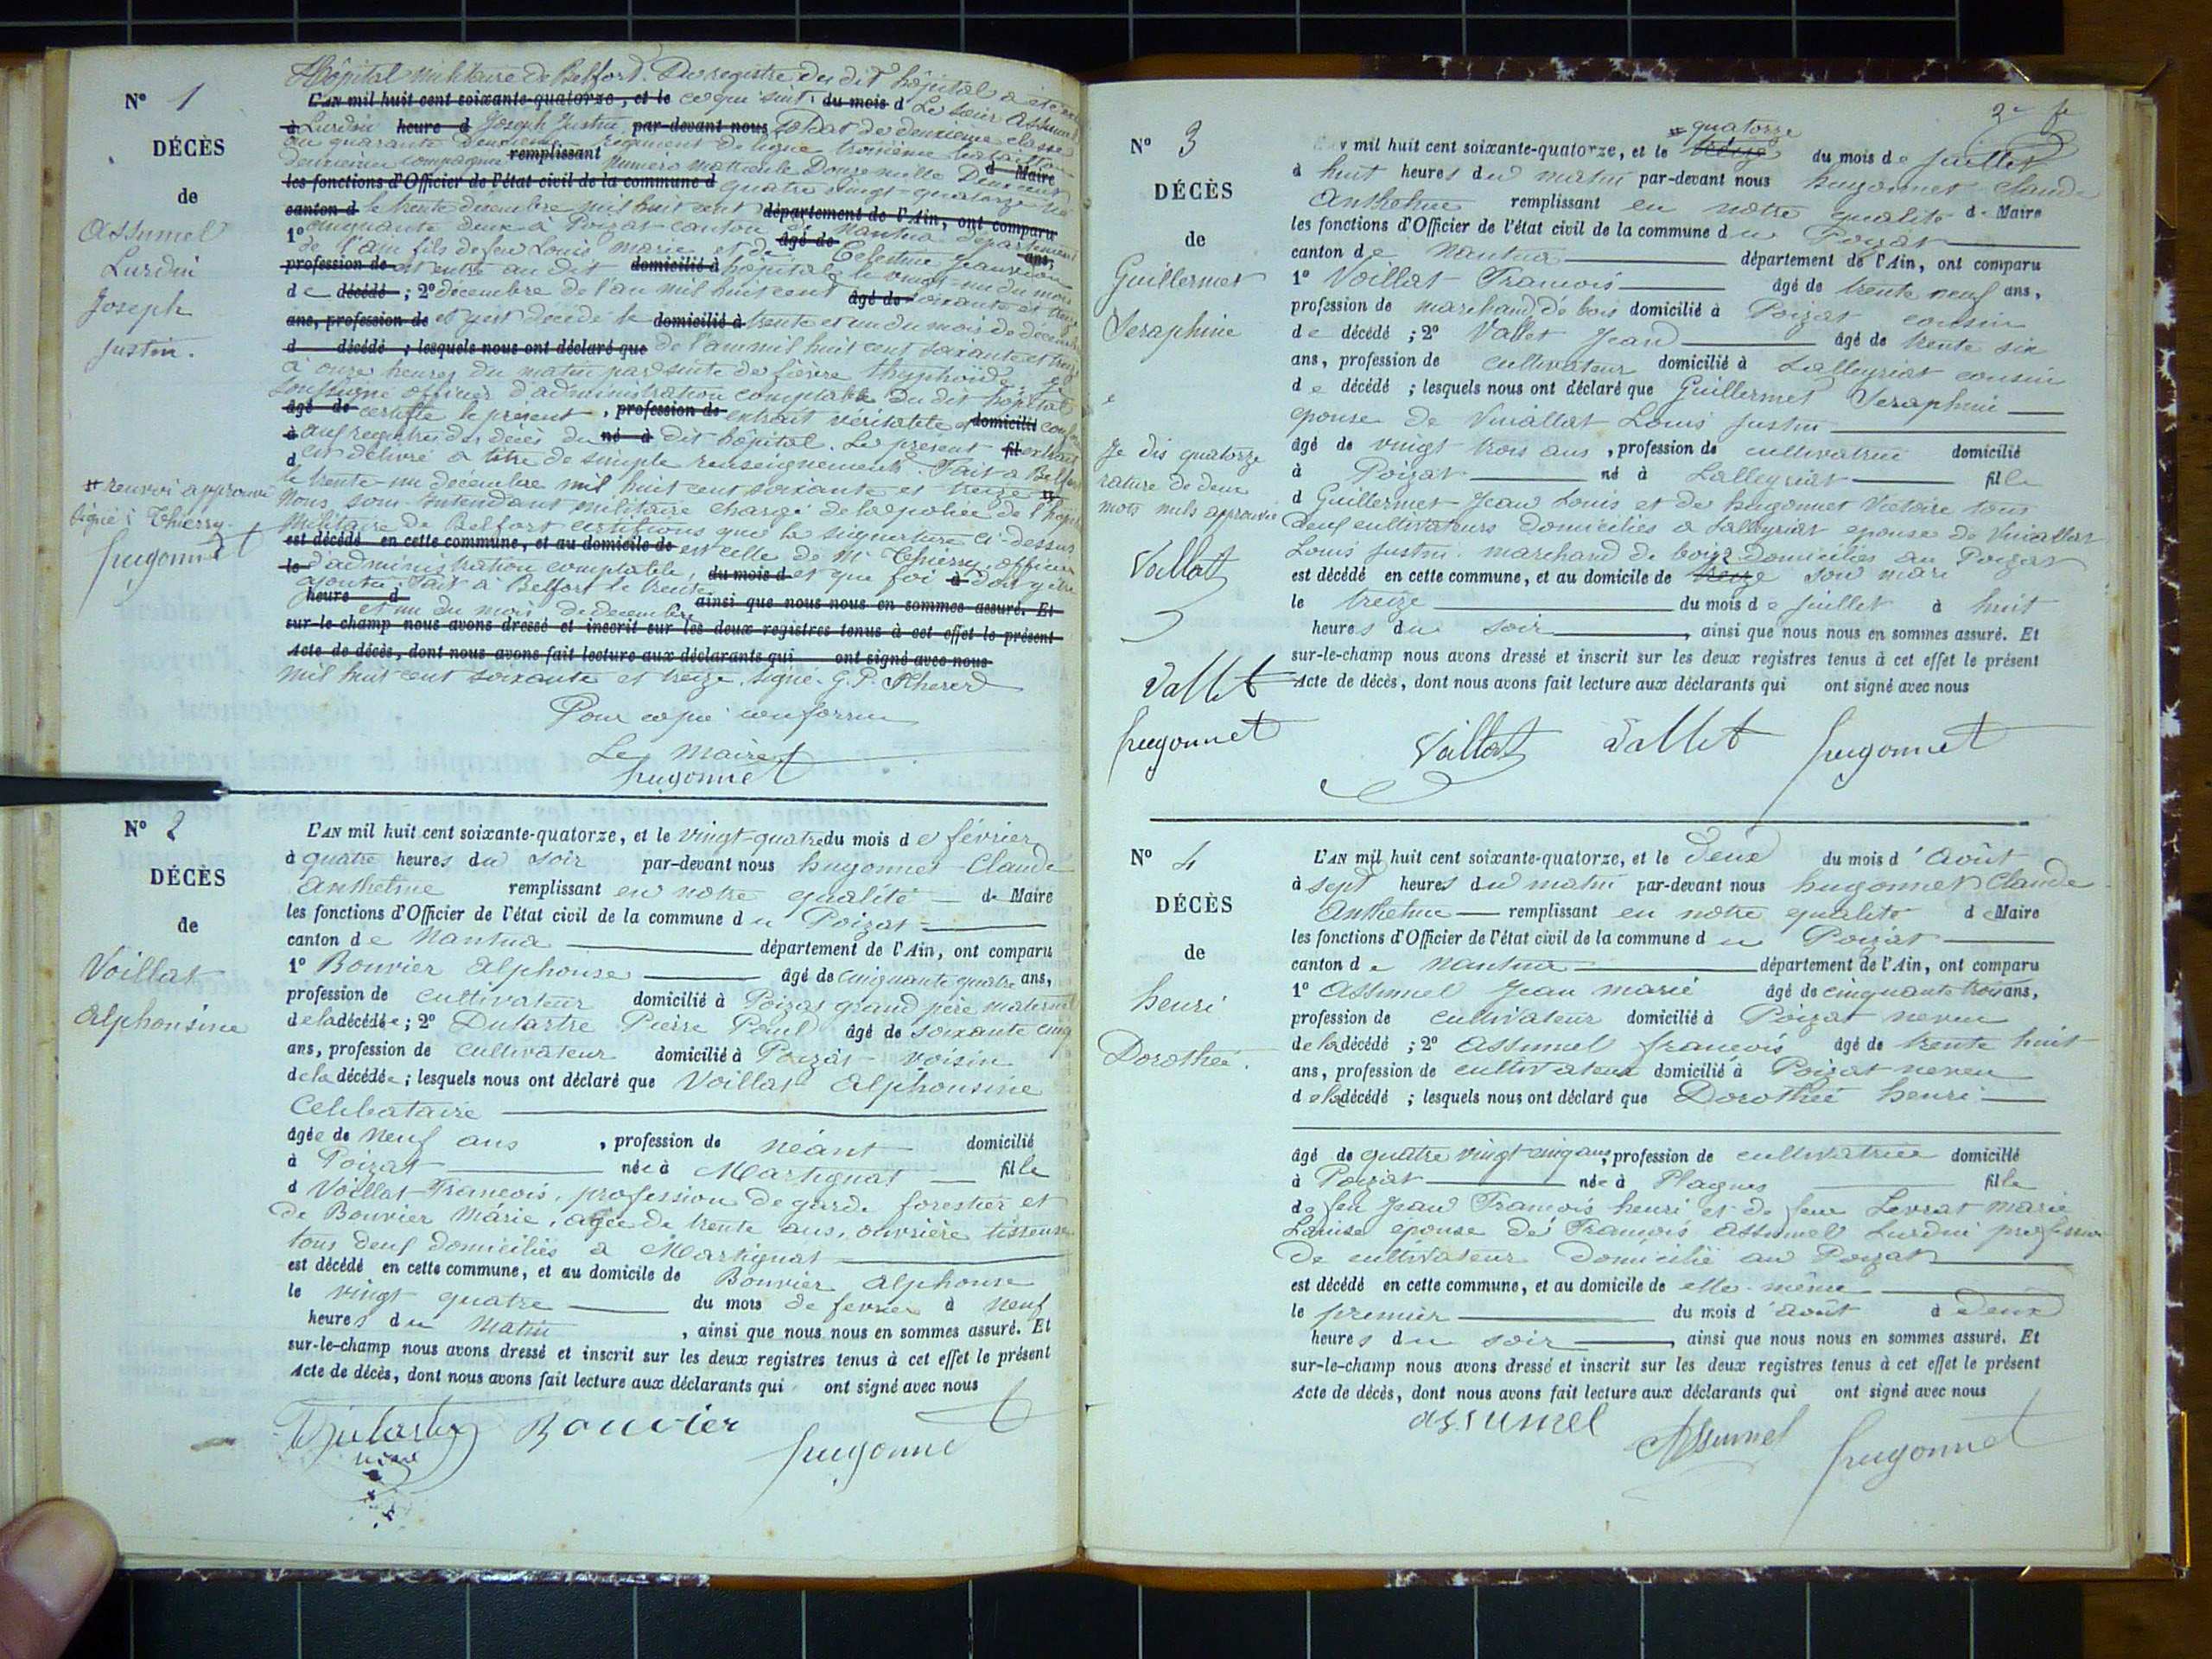 N° 1
DÉCÈS
de
Assumel
Lurdin
Joseph
Justin.
# renvoi approuvé
signé : Thierry.
hugonnet
Hôpital militaire de Belfort. Du registre du dit hôpital a été
L'AN mil huit cent soixante-quatorze, et le ce qui suit. du mois d Le sieur Assumel
à Lurdin heure d Joseph Justin par-devant nous soldat de deuxième classe
au quarante deuxième régiment de ligne troisième bataillon
deuxième compagnie remplissant numéro matricule Douze mille Deux cent d Maire
les fonctions d'Officier de l'état civil de la commune d quatre vingt-quatorze né
canton d le trente décembre mil huit cent département de l'Ain, ont comparu
1° cinquante deux à Poizat canton de Nantua âgé de département ans,
de l'ain fils de feu Louis marie et de Célestine
profession de est entré au dit domicilié à hôpital le vingt-un du mois
de décédé ; 2° décembre de l'an mil huit cent âgé de soixante et treize
ans, profession de et y est décédé le domicilié à trente et un du mois de décembre
d décédé ; lesquels nous ont déclaré que de l'an mil huit cent soixante et treize
à onze heures du matin par suite de fièvre thyphoïde.
soussigné officier d'administration comptable du dit hôpital
âgé de certifie le présent , profession de extrait véritable et domicilié
à aux registres des décès du né à dit hôpital. Le présent fil extrait
d est délivré à titre de simple renseignements Fait à Belfort
le trente un décembre mil huit cent soixante et treize #
Nous sous Intendant militaire chargé de la police de l'hôpital
militaire de Belfort certifions que la signature ci-dessus
est décédé en cette commune, et au domicile de est celle de Mr Thierry, officier
le d'administration comptable, du mois d et que foi à doit y être
ajoutée. Fait à Belfort le trente
heure d et un du mois de décembre ainsi que nous nous en sommes assuré. Et
sur-le-champ nous avons dressé et inscrit sur les deux registres tenus à cet effet le présent
Acte de décès, dont nous avons fait lecture aux déclarants qui ont signé avec nous
mil huit cent soixante et treize. signé. G. P.
Pour copie conforme
Le Maire
hugonnet
N° 2
DÉCÈS
de
Voillat
Alphonsine
L'AN mil huit cent soixante-quatorze, et le vingt-quatre du mois de février
à quatre heures du soir par-devant nous hugonnet Claude
Anthelme remplissant en notre qualité — de Maire
les fonctions d'Officier de l'état civil de la commune du Poizat
canton de Nantua département de l'Ain, ont comparu
1° Bouvier Alphonse âgé de cinquante quatre ans,
profession de cultivateur domicilié à Poizat grand père maternel
de la décédée ; 2° Dutartre Pierre Paul âgé de soixante cinq
ans, profession de cultivateur domicilié à Poizat - voisin
de la décédée ; lesquels nous ont déclaré que Voillat Alphonsine
Celibataire
âgée de neuf ans , profession de néant domicilié
à Poizat née à Martignat fille
d Voillat François, profession de garde forestier et
de Bouvier Marie, agée de trente ans, ouvrière tisseuse
tous deux domiciliés à Martignat
est décédé en cette commune, et au domicile de Bouvier Alphonse
le vingt quatre du mois de fevrier à neuf
heures du matin , ainsi que nous nous en sommes assuré. Et
sur-le-champ nous avons dressé et inscrit sur les deux registres tenus à cet effet le présent
Acte de décès, dont nous avons fait lecture aux déclarants qui ont signé avec nous
Dutartre Bouvier hugonnet
2e f
N° 3
DÉCÈS
de
Guillermet
Seraphine
Je dis quatorze
rature de deux
mots nuls approuvée
Vallet
hugonnet
# quatorze
mil huit cent soixante-quatorze, et le treize du mois de juillet
à huit heures du matin par-devant nous hugonnet Claude
Anthelme remplissant en notre qualité de Maire
les fonctions d'Officier de l'état civil de la commune du Poizat
canton de Nantua département de l'Ain, ont comparu
1° Voillat François âgé de trente neuf ans,
profession de marchand de bois domicilié à Poizat cousin
de décédé ; 2° Vallet Jean âgé de trente six
ans, profession de cultivateur domicilié à Lalleyriat cousin
de décédé ; lesquels nous ont déclaré que Guillermet Seraphine
epouse de Vuaillat Louis Justin
âgé de vingt trois ans , profession de cultivatrice domicilié
à Poizat né à Lalleyriat fille
d Guillermet Jean Louis et de hugonnet Victoire tous
deux cultivateurs domiciliés à Lalleyriat epouse de Vuaillat
Louis Justin. marchand de bois domiciliés au Poizat
est décédé en cette commune, et au domicile de treize son mari
le treize du mois de juillet à huit
heures du soir , ainsi que nous nous en sommes assuré. Et
sur-le-champ nous avons dressé et inscrit sur les deux registres tenus à cet effet le présent
Acte de décès, dont nous avons fait lecture aux déclarants qui ont signé avec nous
Vallet hugonnet
N° 4
DÉCÈS
de
henri
Dorothée.
L'AN mil huit cent soixante-quatorze, et le Deux du mois d'Août
à sept heures du matin par-devant nous hugonnet Claude
Anthelme — remplissant en notre qualité de Maire
les fonctions d'Officier de l'état civil de la commune du Poizat
canton de Nantua département de l'Ain, ont comparu
1° Assumel Jean marie âgé de cinquante trois ans,
profession de cultivateur domicilié à Poizat neveu
de la décédé ; 2° Assumel francois âgé de trente huit
ans, profession de cultivateur domicilié à Poizat neveu
de la décédé ; lesquels nous ont déclaré que Dorothée henri
âgé de quatre vingt cinq ans, profession de cultivatrice domicilié
à Poizat née à Plagnes fille
de feu Jean François henri et de feue Levrat marie
Louise epouse de François Assumel Lurdin profession
de cultivateur domicilié au Poizat
est décédé en cette commune, et au domicile de elle-même
le premier du mois d'août à deux
heures du soir , ainsi que nous nous en sommes assuré. Et
sur-le-champ nous avons dressé et inscrit sur les deux registres tenus à cet effet le présent
Acte de décès, dont nous avons fait lecture aux déclarants qui ont signé avec nous
assumel Assumel hugonnet